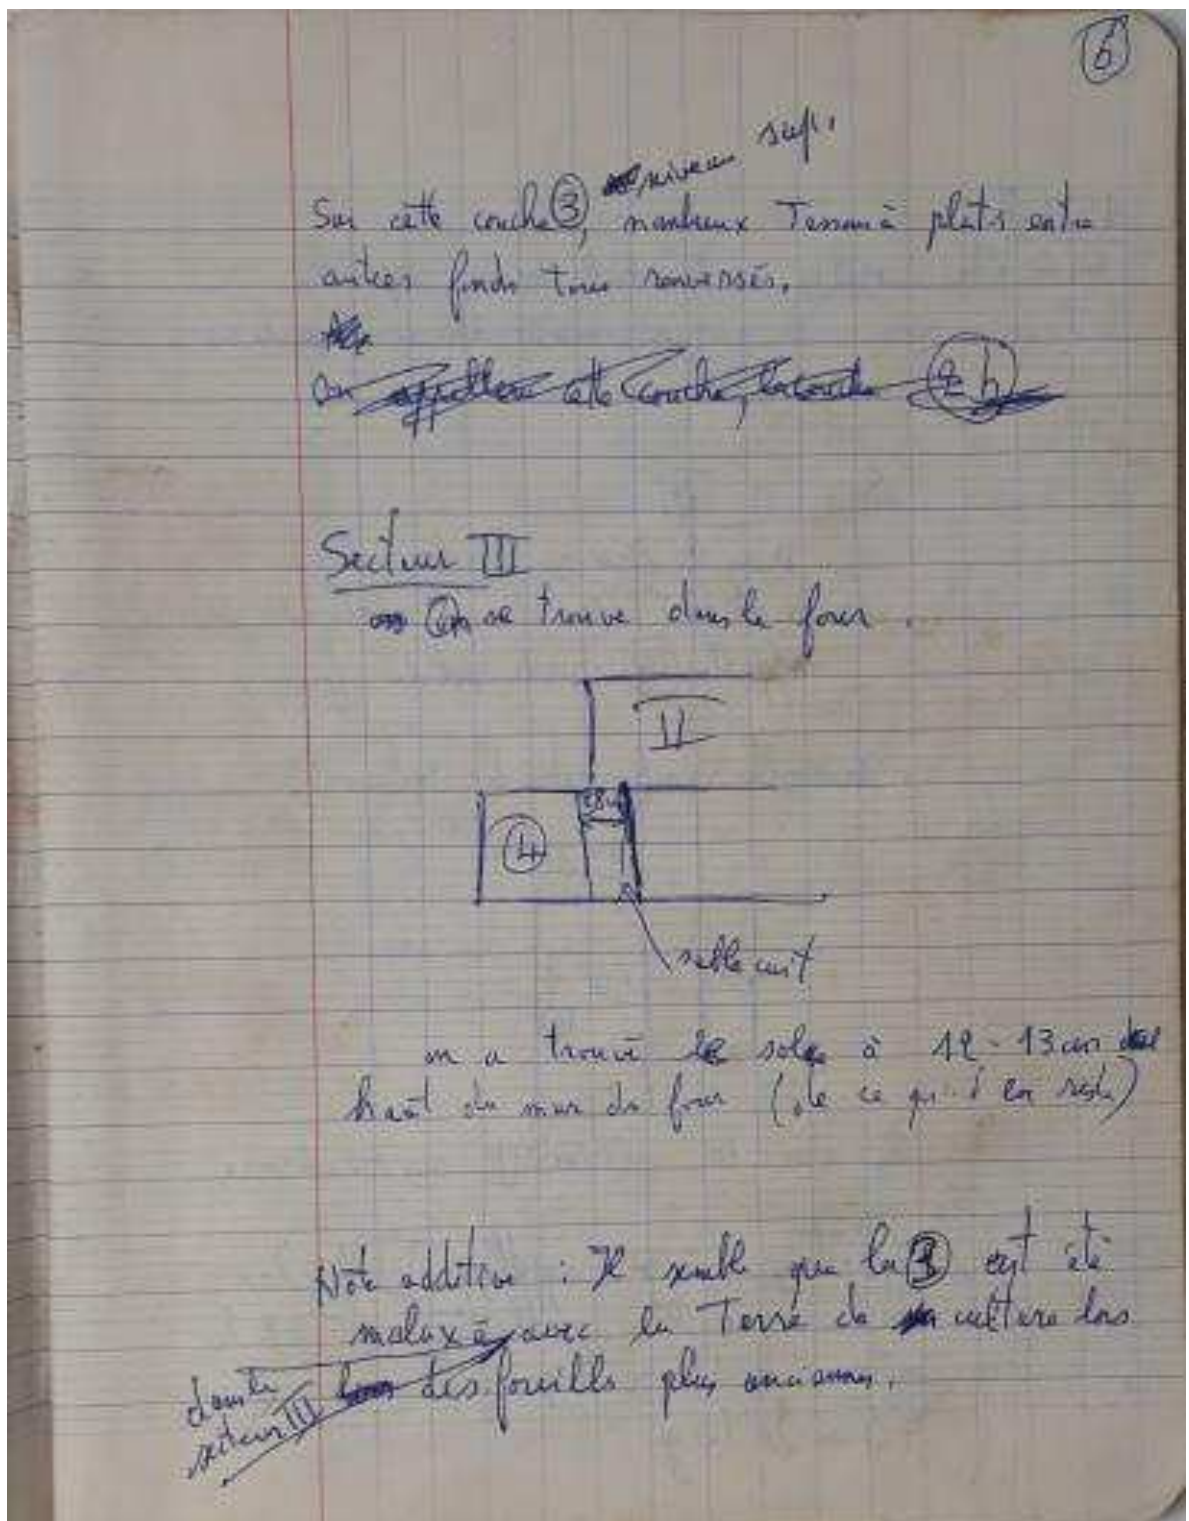 6
niveau sup.
Sur cette couche 3, nombreux Tessons à plats entre
autres fonds tous renversés.
on appellera cette couche, la couche 2b
Secteur III
On se trouve dans le four.
II
28
4
sable cuit
on a trouvé le sole à 12-13 cm du
haut du mur du four (de ce qu'il en reste)
Note additive : Il semble que la 3 ait été
malaxée avec la Terre de culture lors
dans le
secteur III
des fouilles plus anciennes.